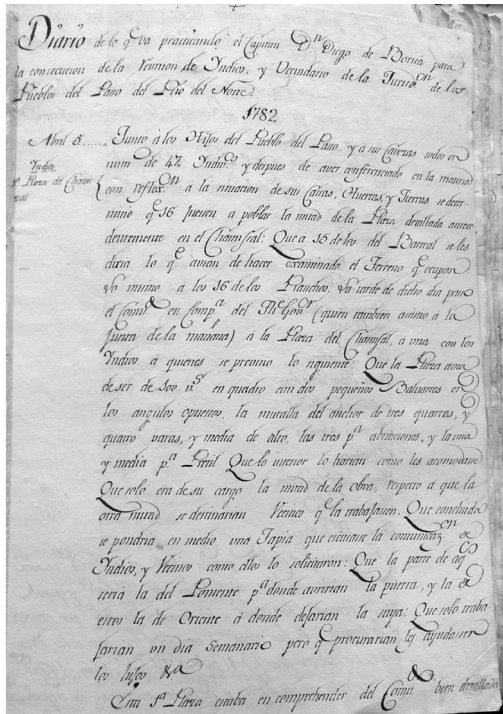 Diario de lo q.e va practicando el Capitan D.n Diego de Borica para
la consecucion de la Reunion de Indios, y Vecindario de la Jurisd.on de los
Pueblos del Paso del Rio del Norte
1782
Abril 5...... Junte à los Hijos del Pueblo del Paso y a su Caveza todos en
Indios
1.a Plaza del Chamizal
num.o de 47 Indiv.s y despues de aver conferenciado en la materia
con reflex.on à la situacion de sus Casas, Huertas, y Tierras se deter-
mino q.e 16 fuesen a poblar la mitad de la Plaza detallada antece-
dentemente en el Chamisal: Que à 15 de los del Barreal se les
diria lo q.e avian de hacer examinado el Terreno q.e ocupan
lo mismo à los 16 de los Ranchos. La tarde de dicho dia pase
el Comis.do en Comp.a del Th.e Gov.r (quien tambien asistio à la
Junta de la mañana) à la Plaza del Chamisal, à una con los
Indios a quienes se previno lo siguiente: Que la Plaza avia
de ser de 300 v.s en quadro con dos pequeños Baluartes en
los angulos opuestos, la muralla del anchor de tres quartas, y
quatro varas, y media de alto, las tres p.a abitaciones, y la una
y media p.a Pretil Que lo interior lo harian como les acomodase
Que solo era de su cargo la mitad de la obra, respeto à que la
otra mitad se destinarian Vecinos q.e la trabajasen: Que concluida
se pondria en medio una Tapia que evitase la comunicaz.on de
Indios, y Vecinos como ellos lo solicitaron: Que la parte de aq.os
seria la del Poniente p.a donde avririan la puerta, y la de
estos la de Oriente à donde dejarian la suya: Que solo traba-
jarian un dia Semanario pero q.e procurarian les ayudasen
los hijos &a
Esta 1.a Plaza estaba en comprehender del Comis.do bien detallada